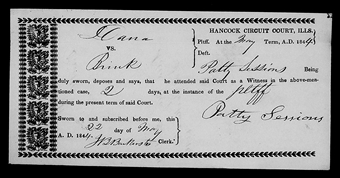 Dana
VS.
Brink
HANCOCK CIRCUIT COURT, ILLS.
Pltff. At the May Term, A.D. 1844.
Deft.
Patty Sessions Being
duly sworn, deposes and says, that he attended said Court as a Witness in the above-men-
tioned case, 2 days, at the instance of the pltff
during the present term of said Court.
Patty Sessions
Sworn to and subscribed before me, this
22 day of May
A. D. 1844.
Clerk.